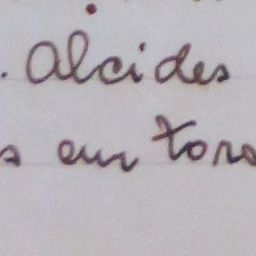 . Alcides
s em torno